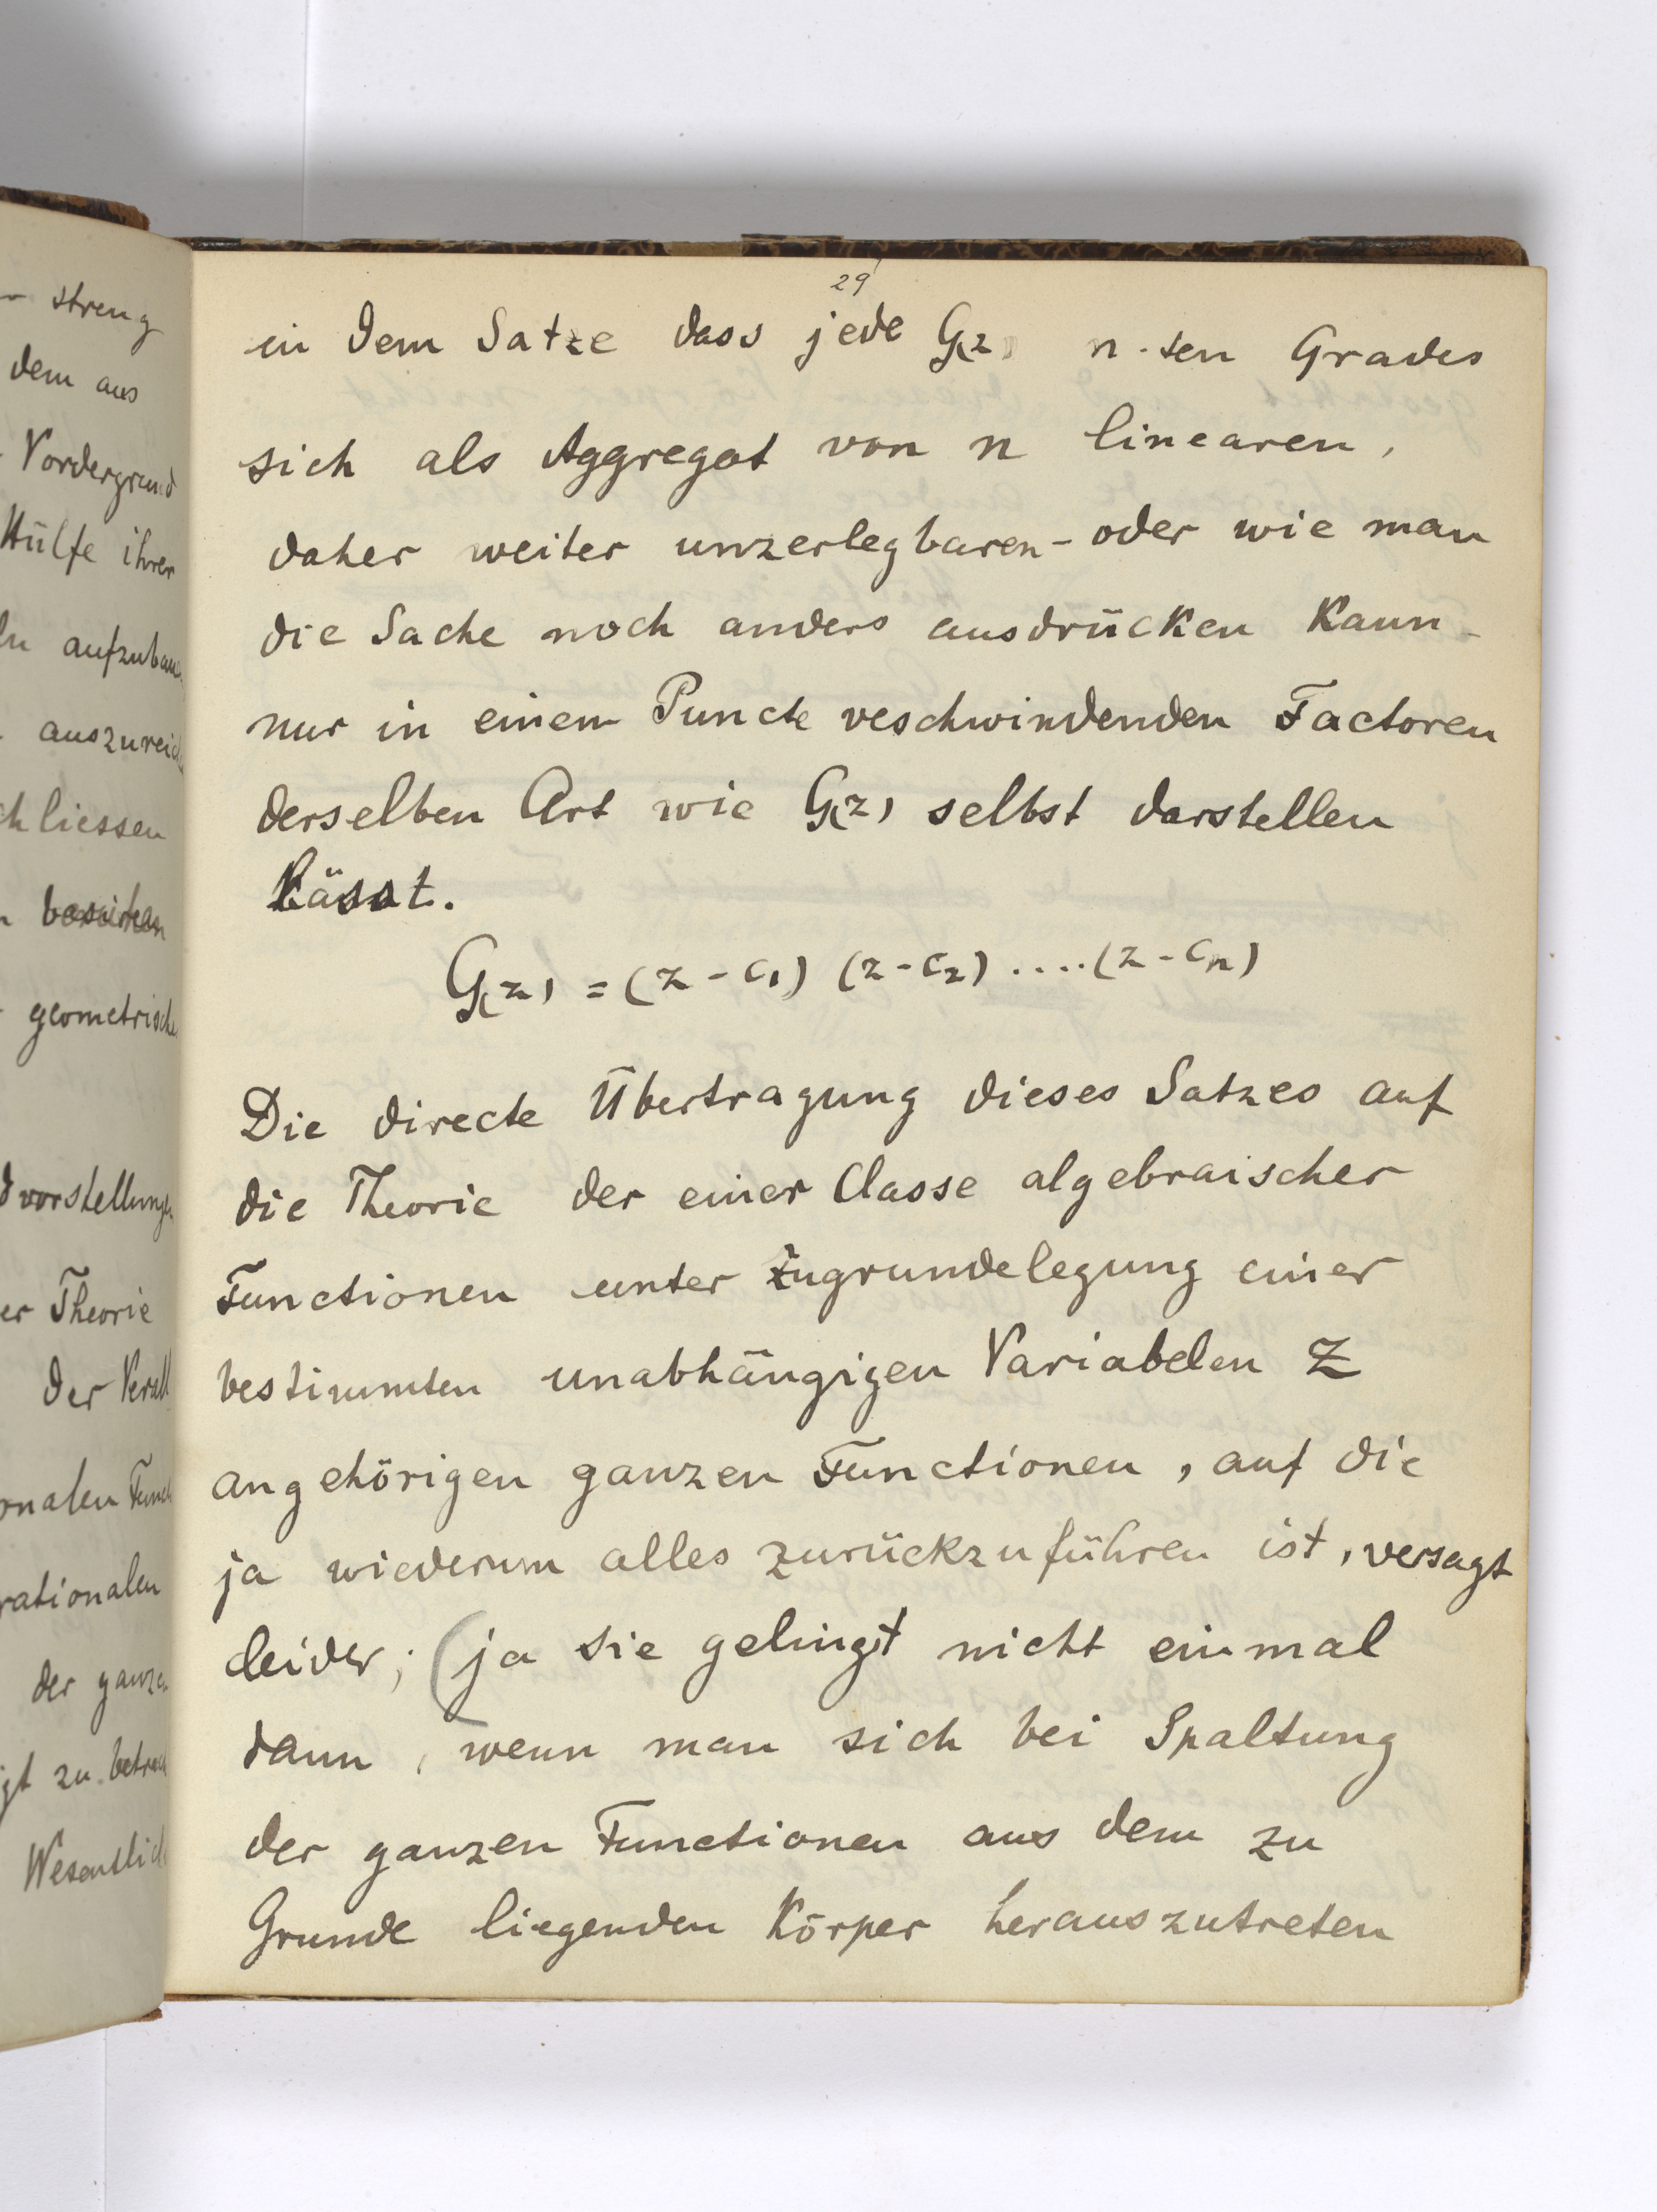 – streng
dem aus
Vordergrund
Hülfe ihrer
ln aufzubau
auszureich
chliessen
geometrische
dvorstellungen
er Theorie
der Verall
onalen Func
rationalen
der ganzen
gt zu betrach
Wesentlich
29
in dem Satze dass jede G(z) n-ten Grades
sich als Aggregat von n linearen,
daher weiter unzerlegbaren - oder wie man
die Sache noch anders ausdrücken kann -
nur in einem Puncte veschwindenden Factoren
derselben Art wie G(z) selbst darstellen
lässt.
G(z) = (z - c₁) (z - c₂) .... (z - cₙ)
Die directe Übertragung dieses Satzes auf
die Theorie der einer Classe algebraischer
Functionen unter Zugrundelegung einer
bestimmten unabhängigen Variabelen z
angehörigen ganzen Functionen, auf die
ja wiederum alles zurückzuführen ist, versagt
leider; (ja sie gelingt nicht einmal
dann, wenn man sich bei Spaltung
der ganzen Functionen aus dem zu
Grunde liegenden Körper herauszutreten